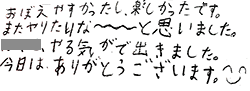 おぼえやすかったし、楽しかったです。
またやりたいな〜〜と思いました。
やる気がで出きました。
今日は、ありがとうございます。